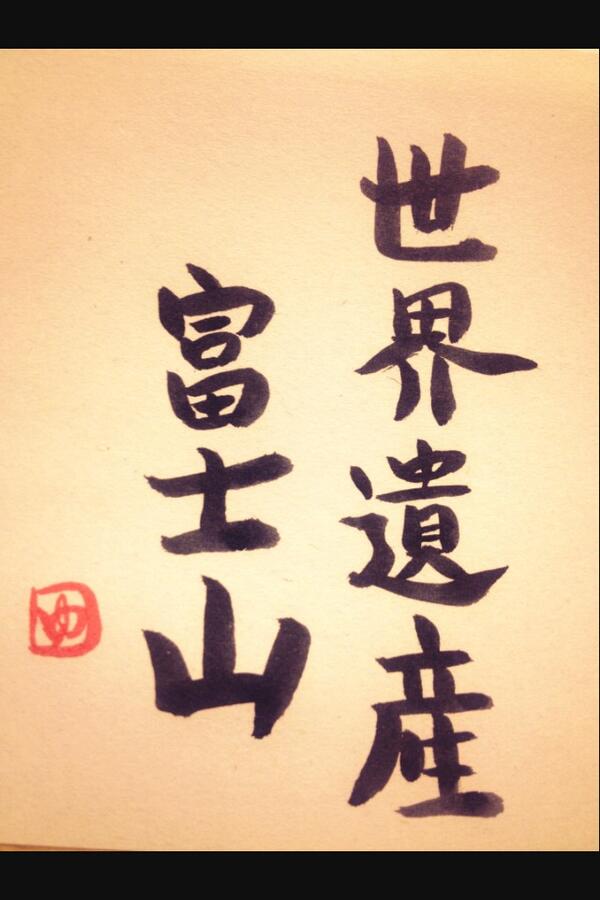 世界遺産
富士山
ゆ